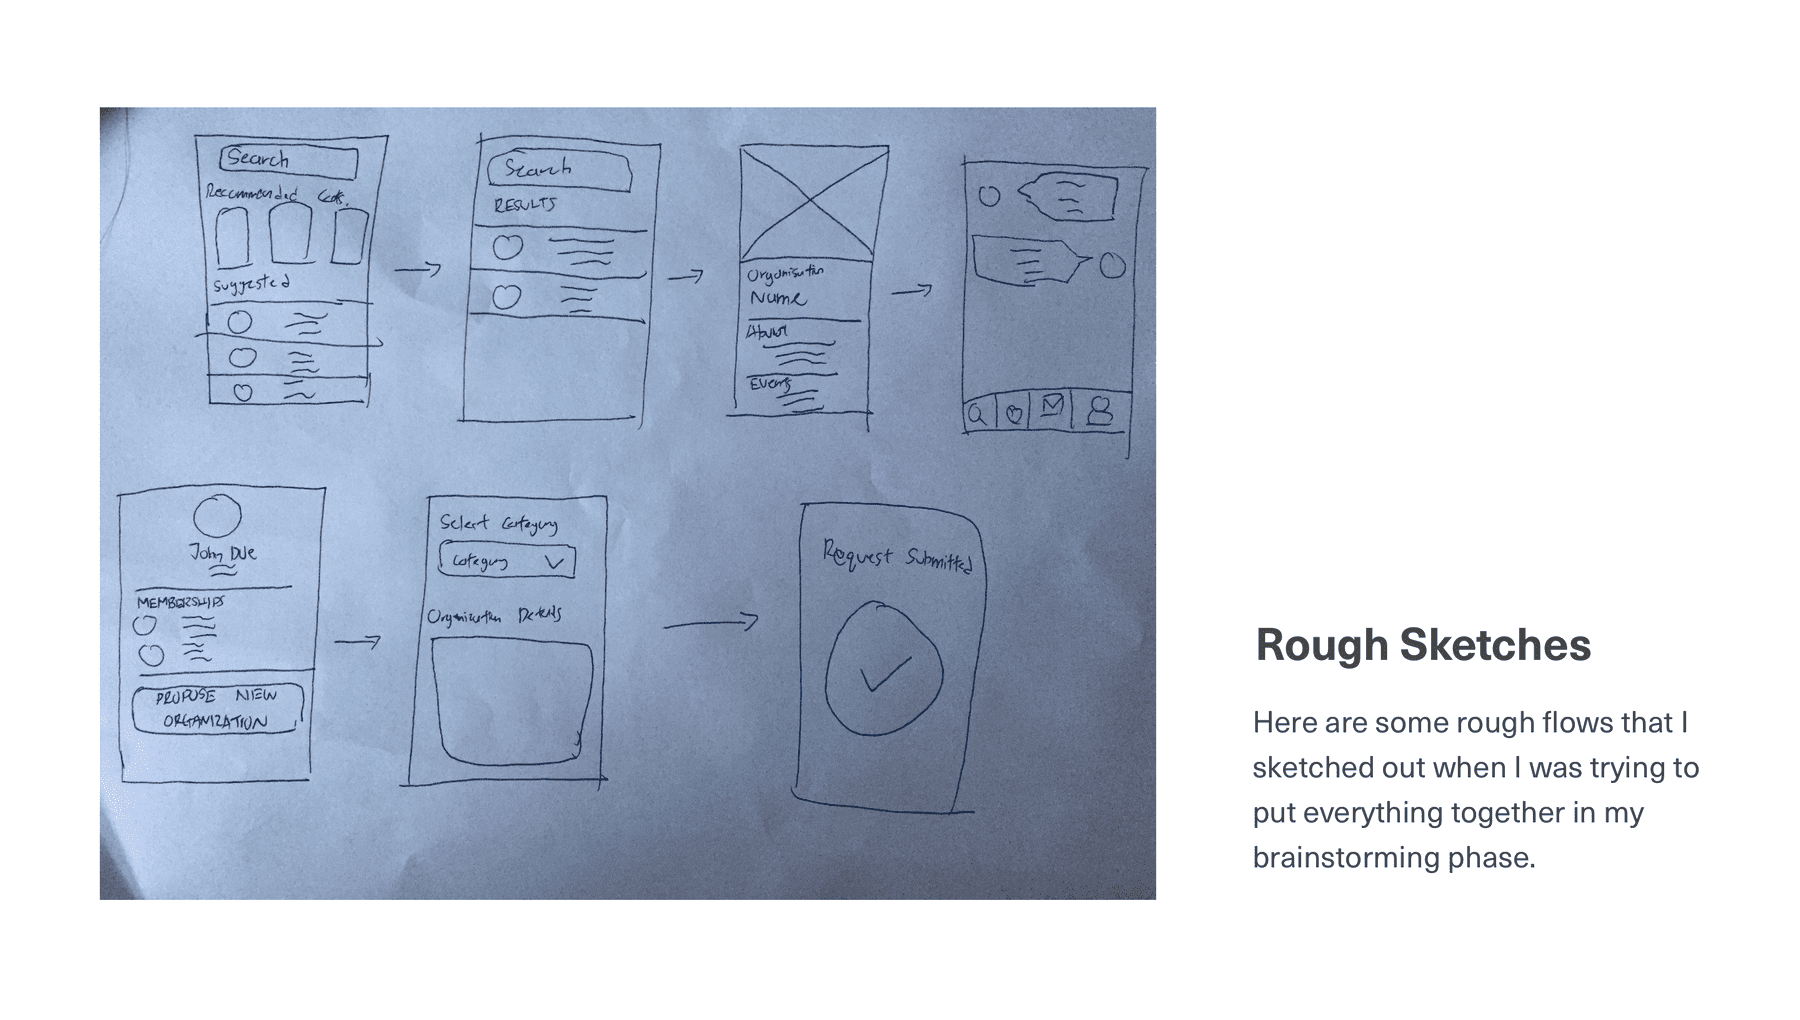 Search
Recommended Cats.
Suggested
Search
RESULTS
Organisation
Name
About
Events
John Doe
MEMBERSHIPS
PROPOSE NEW
ORGANIZATION
Select Category
Category
Organization Details
Request Submitted
Rough Sketches
Here are some rough flows that I
sketched out when I was trying to
put everything together in my
brainstorming phase.